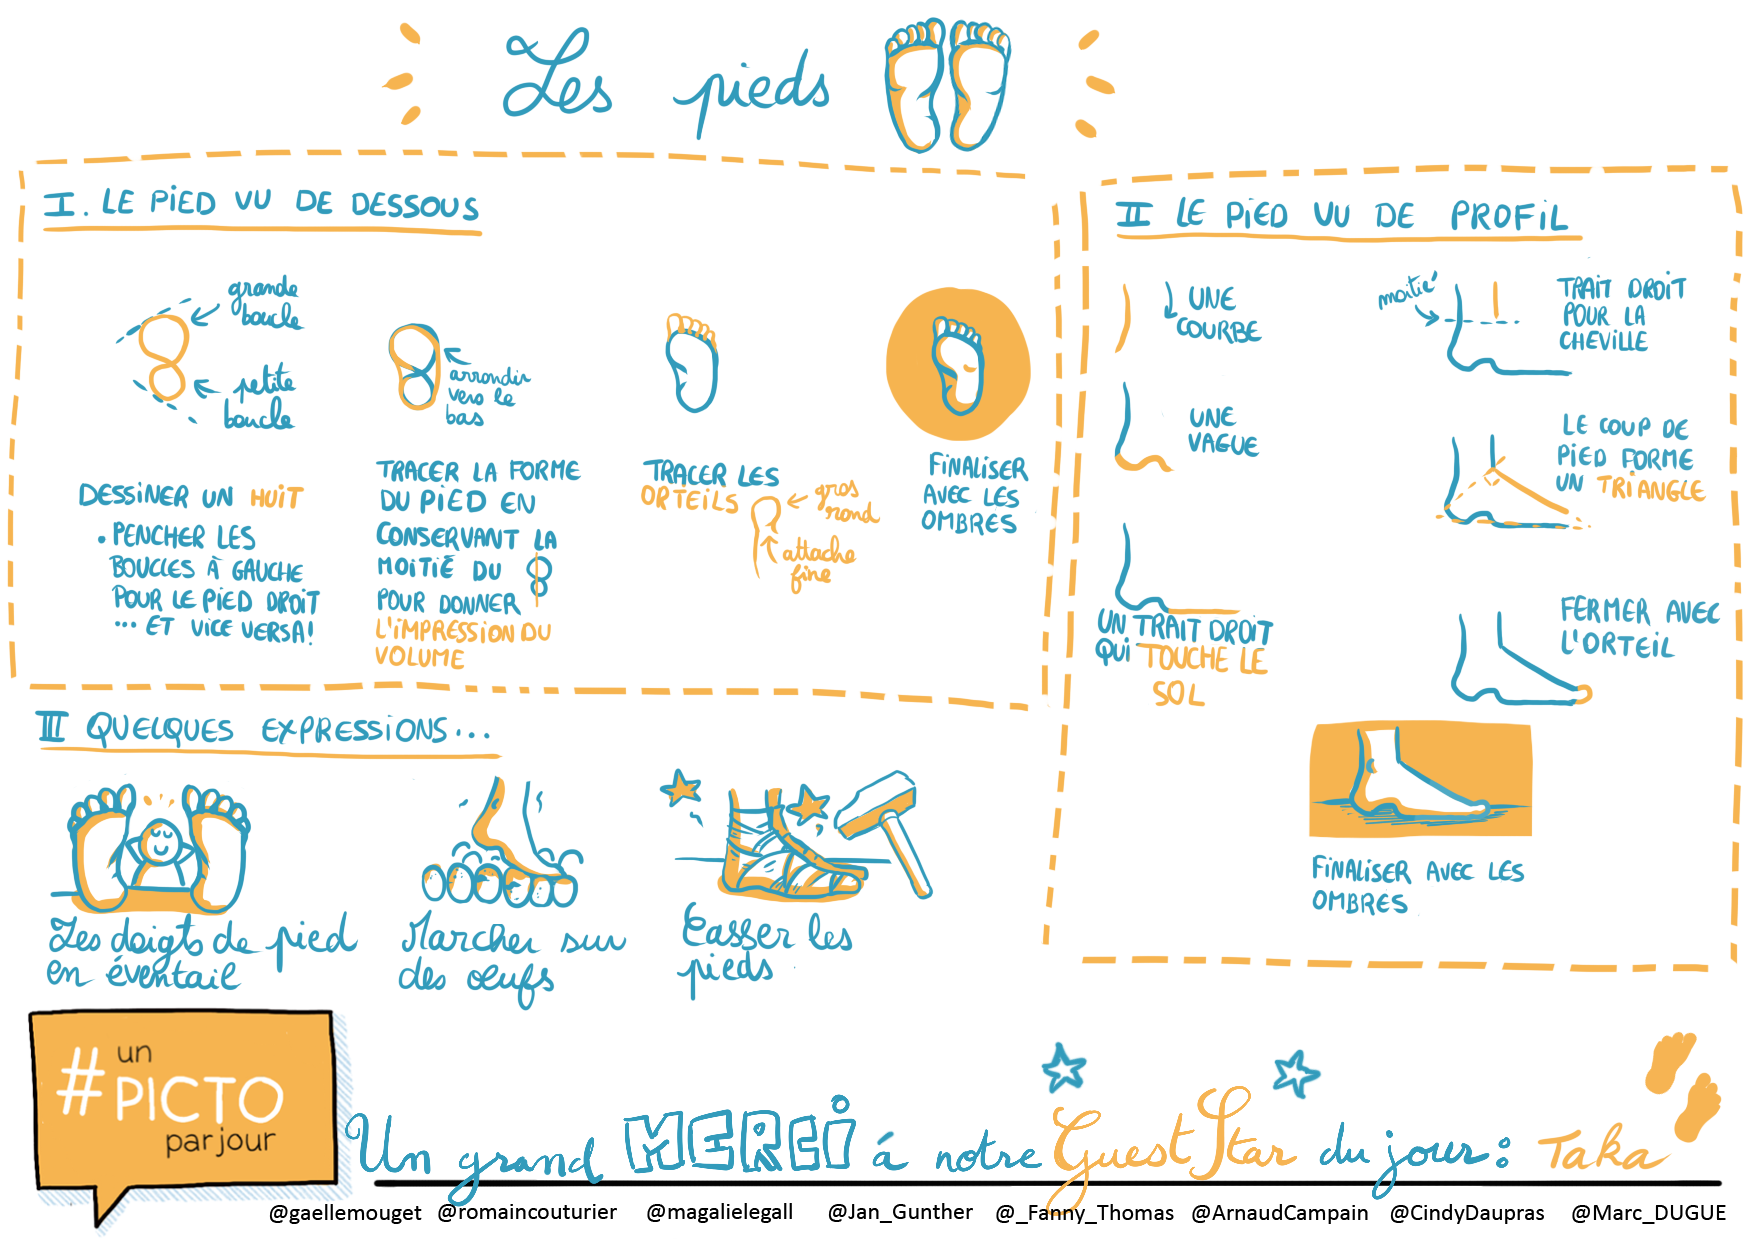 Les pieds
I. LE PIED VU DE DESSOUS
grande
boucle
petite
boucle
DESSINER UN HUIT
• PENCHER LES
BOUCLES À GAUCHE
POUR LE PIED DROIT
... ET VICE VERSA!
arrondir
vers le
bas
TRACER LA FORME
DU PIED EN
CONSERVANT LA
MOITIÉ DU
POUR DONNER
L'IMPRESSION DU
VOLUME
TRACER LES
ORTEILS
gros
rond
attache
fine
FINALISER
AVEC LES
OMBRES
II LE PIED VU DE PROFIL
UNE
COURBE
UNE
VAGUE
UN TRAIT DROIT
QUI TOUCHE LE
SOL
moitié
TRAIT DROIT
POUR LA
CHEVILLE
LE COUP DE
PIED FORME
UN TRIANGLE
FERMER AVEC
L'ORTEIL
FINALISER AVEC LES
OMBRES
III QUELQUES EXPRESSIONS...
Les doigts de pied
en éventail
Marcher sur
des oeufs
Casser les
pieds
# un
PICTO
par jour
Un grand MERCI à notre Guest Star du jour : Taka
@gaellemouget @romaincouturier @magalielegall @Jan_Gunther @_Fanny_Thomas @ArnaudCampain @CindyDaupras @Marc_DUGUE